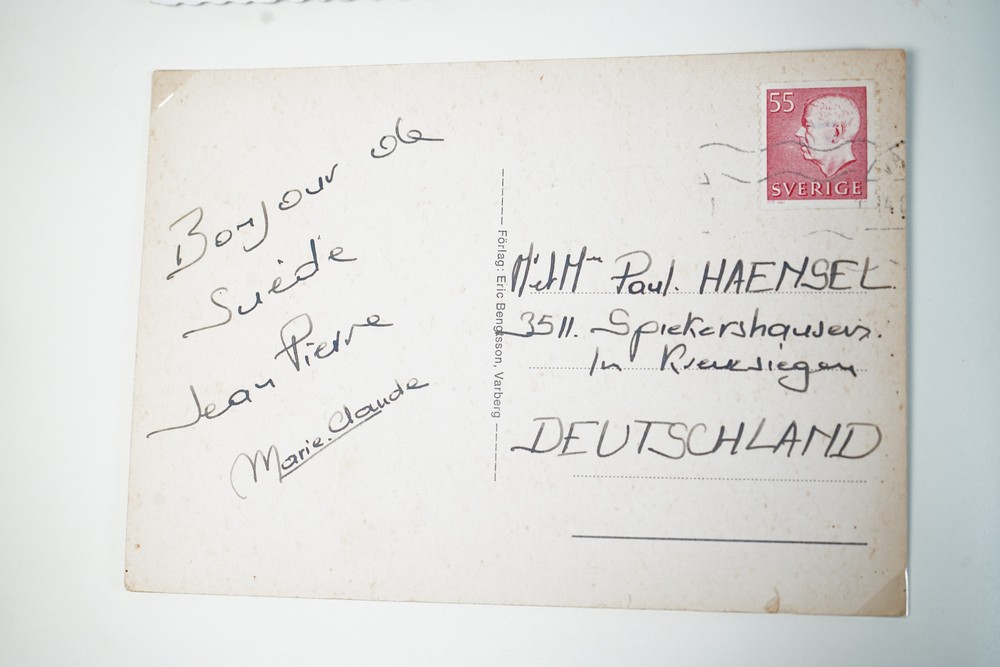 Bonjour de
Suède
Jean Pierre
Marie.Claude
Förlag: Eric Bengtsson, Varberg
55
SVERIGE
M et Mme Paul. HAENSEL.
3511. Spiekershausen.
In
DEUTSCHLAND